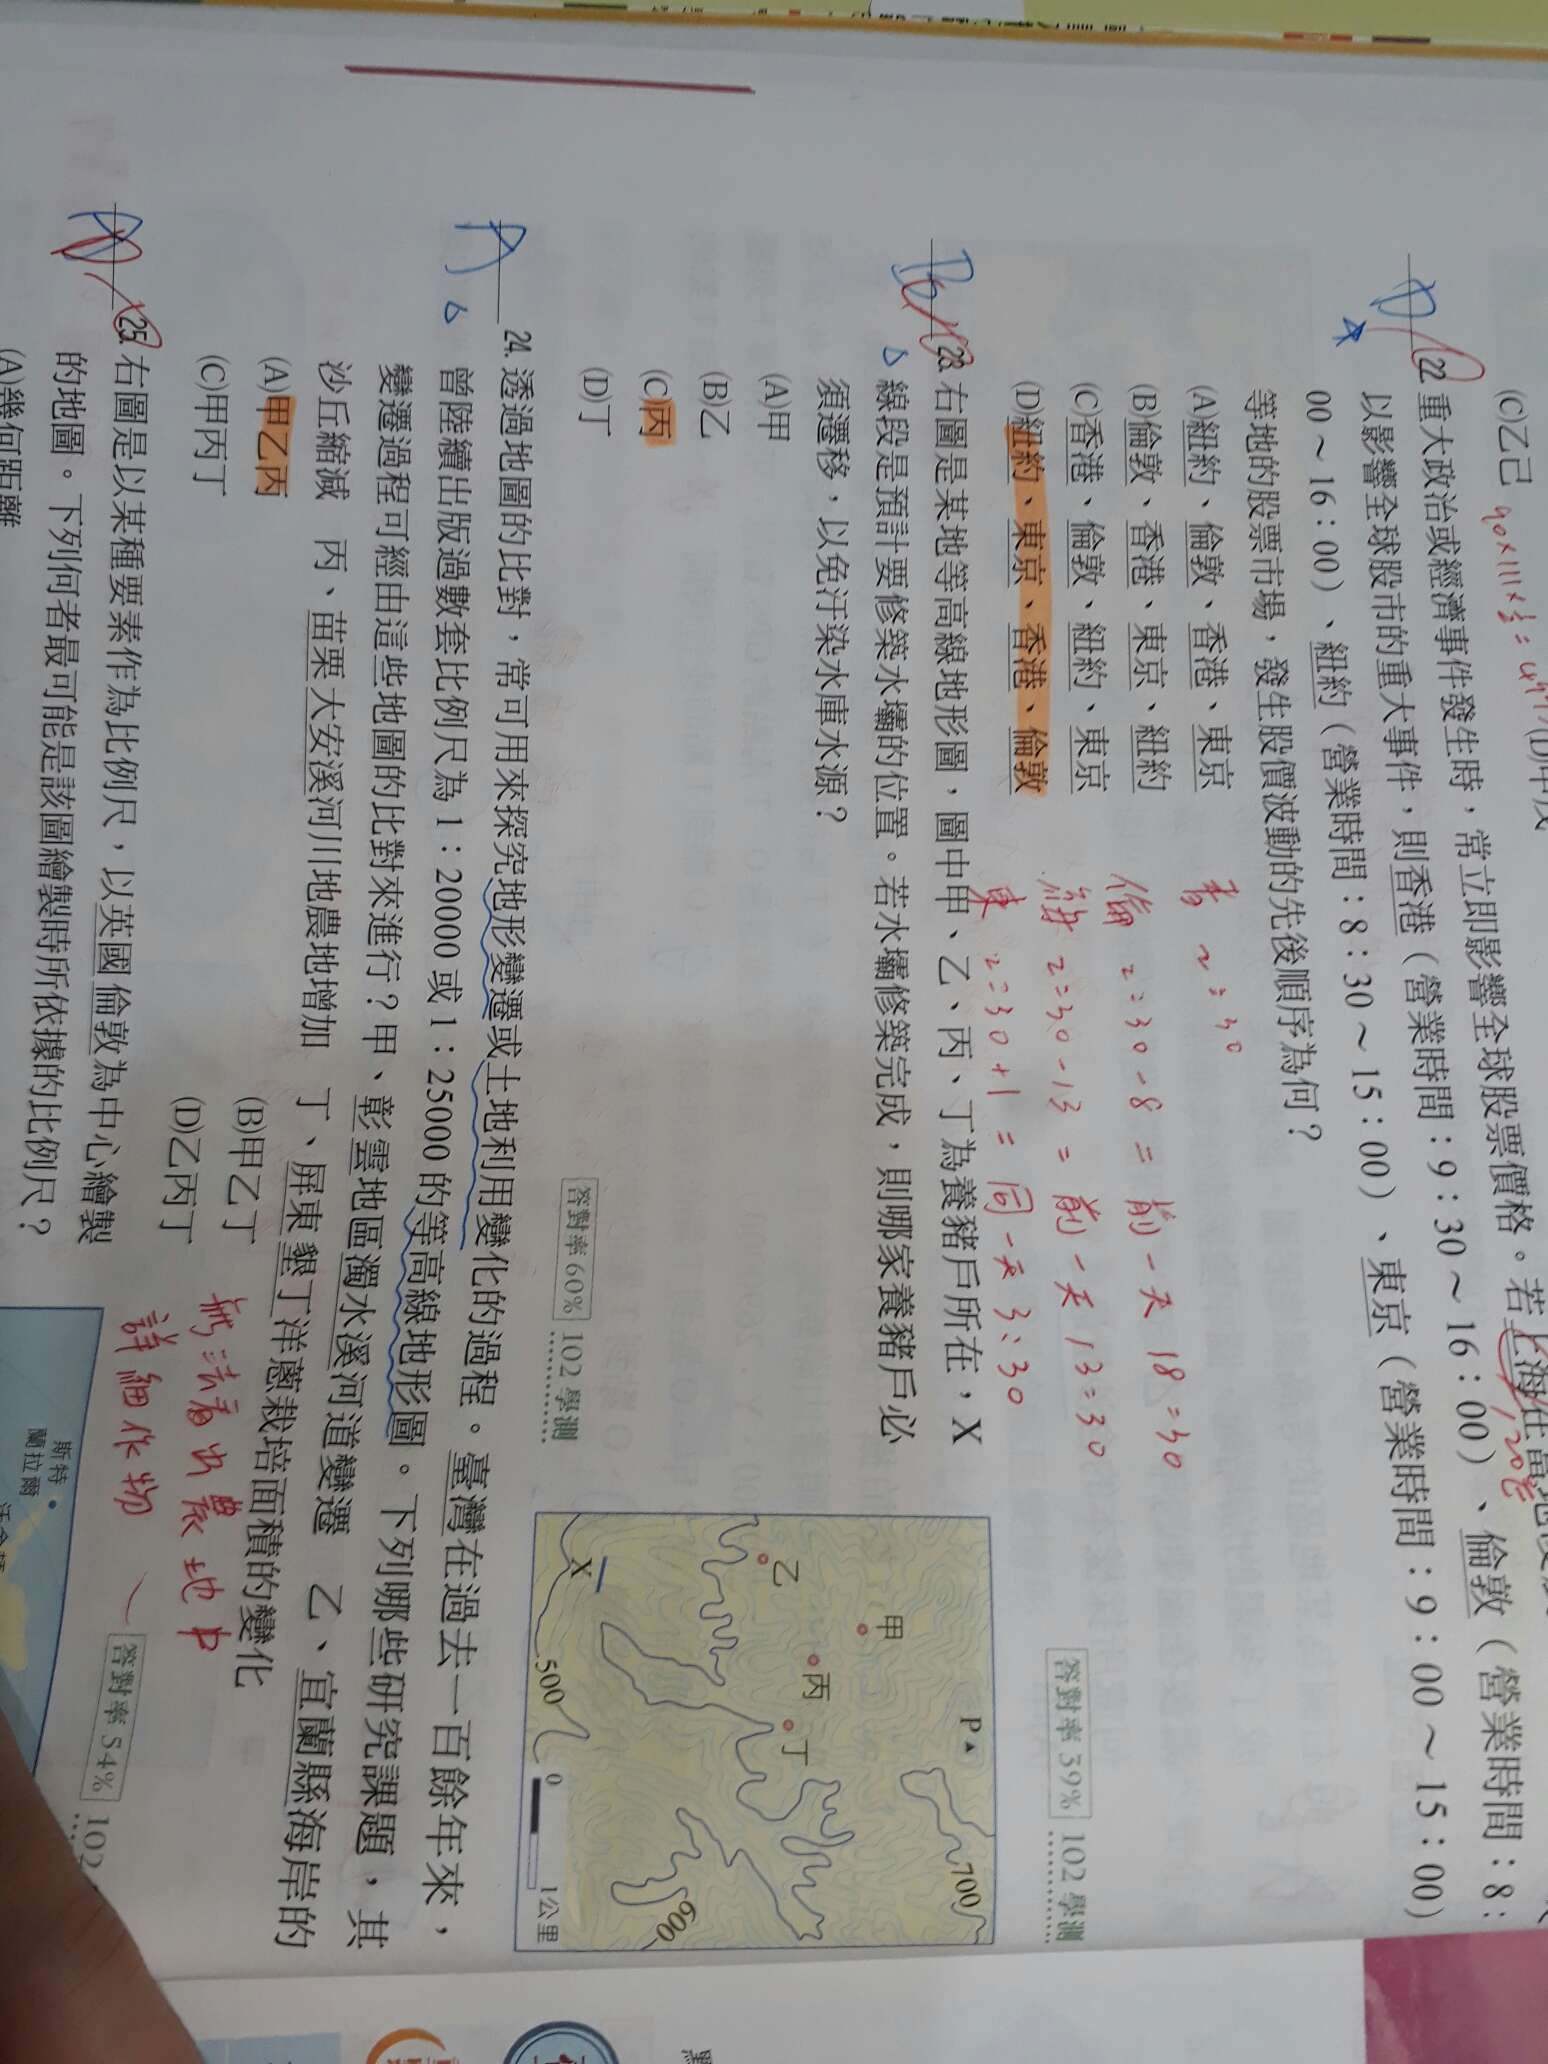 (C)乙己 (D)甲戊
22. 重大政治或經濟事件發生時，常立即影響全球股票價格。若上海在當地
以影響全球股市的重大事件，則香港（營業時間：9：30～16：00）、倫敦（營業時間：8：
00～16：00）、紐約（營業時間：8：30～15：00）、東京（營業時間：9：00～15：00）
等地的股票市場，發生股價波動的先後順序為何？
(A)紐約、倫敦、香港、東京
(B)倫敦、香港、東京、紐約
(C)香港、倫敦、紐約、東京
(D)紐約、東京、香港、倫敦
香 2：30
倫 2：30-8＝前一天 18：30
紐 2：30-13＝前一天 13：30
東 2：30+1＝同一天 3：30
答對率 39% 102 學測
23. 右圖是某地等高線地形圖，圖中甲、乙、丙、丁為養豬戶所在，X
線段是預計要修築水壩的位置。若水壩修築完成，則哪家養豬戶必
須遷移，以免汙染水庫水源？
(A)甲
(B)乙
(C)丙
(D)丁
答對率 60% 102 學測
P
700
甲
乙
丙
丁
600
X
500
0 1公里
A
24. 透過地圖的比對，常可用來探究地形變遷或土地利用變化的過程。臺灣在過去一百餘年來，
曾陸續出版過數套比例尺為 1：20000 或 1：25000 的等高線地形圖。下列哪些研究課題，其
變遷過程可經由這些地圖的比對來進行？甲、彰雲地區濁水溪河道變遷 乙、宜蘭縣海岸的
沙丘縮減 丙、苗栗大安溪河川地農地增加 丁、屏東墾丁洋蔥栽培面積的變化
(A)甲乙丙 (B)甲乙丁
(C)甲丙丁 (D)乙丙丁
無法看出農地中
詳細作物
答對率 54% 102
25. 右圖是以某種要素作為比例尺，以英國倫敦為中心繪製
的地圖。下列何者最可能是該圖繪製時所依據的比例尺？
(A)幾何距離
斯特
蘭拉爾